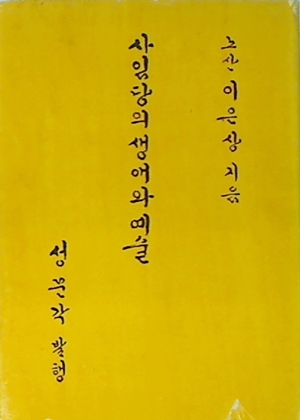 노산 이은상 지음
사임당의 생애와 예술
성문각 발행